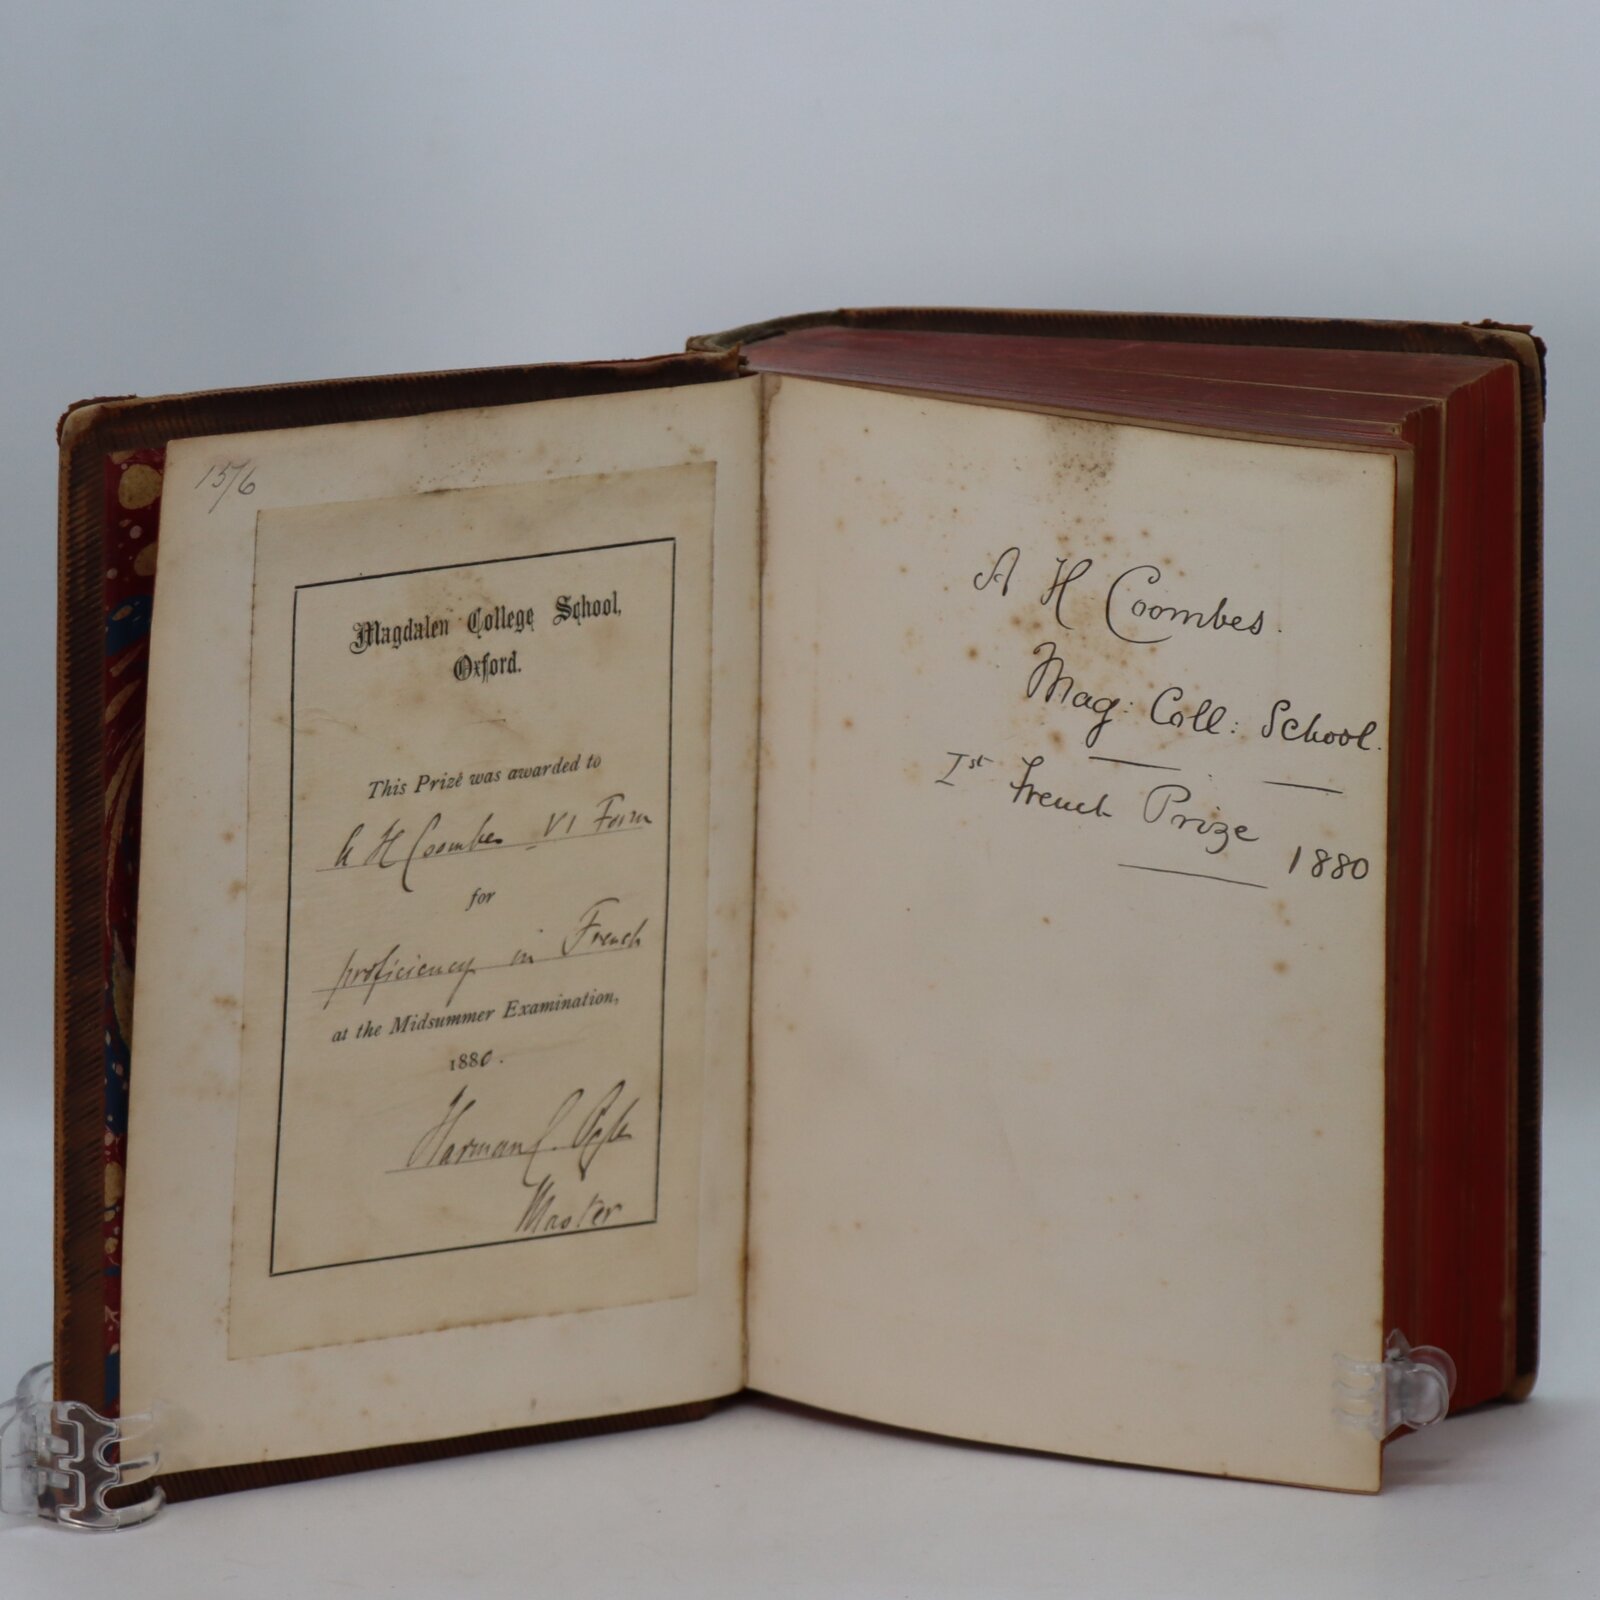 15/6
Magdalen College School,
Oxford.
This Prize was awarded to
A H Coombes VI Form
for
proficiency in French
at the Midsummer Examination,
1880.
Harman C. Ogle
Master
A H Coombes.
Mag: Coll: School.
Ist French Prize 1880